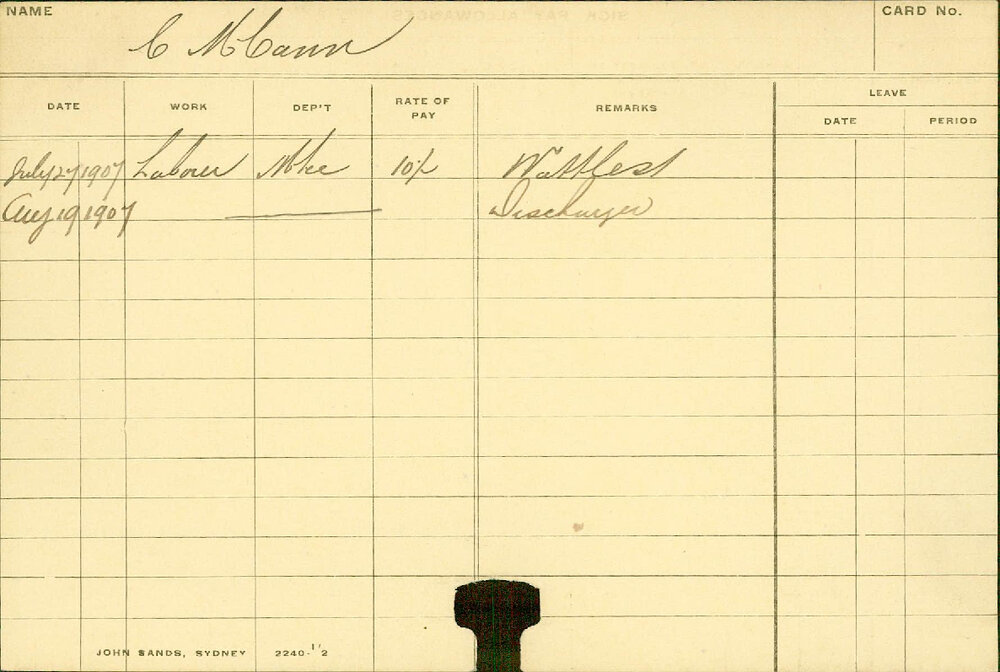 NAME
CARD No.
C McCann
DATE WORK DEP'T RATE OF PAY REMARKS LEAVE
DATE PERIOD
July 27 1907 Labourer 10/- Wattle St
Aug 19 1907 Discharged
JOHN SANDS, SYDNEY 2240-